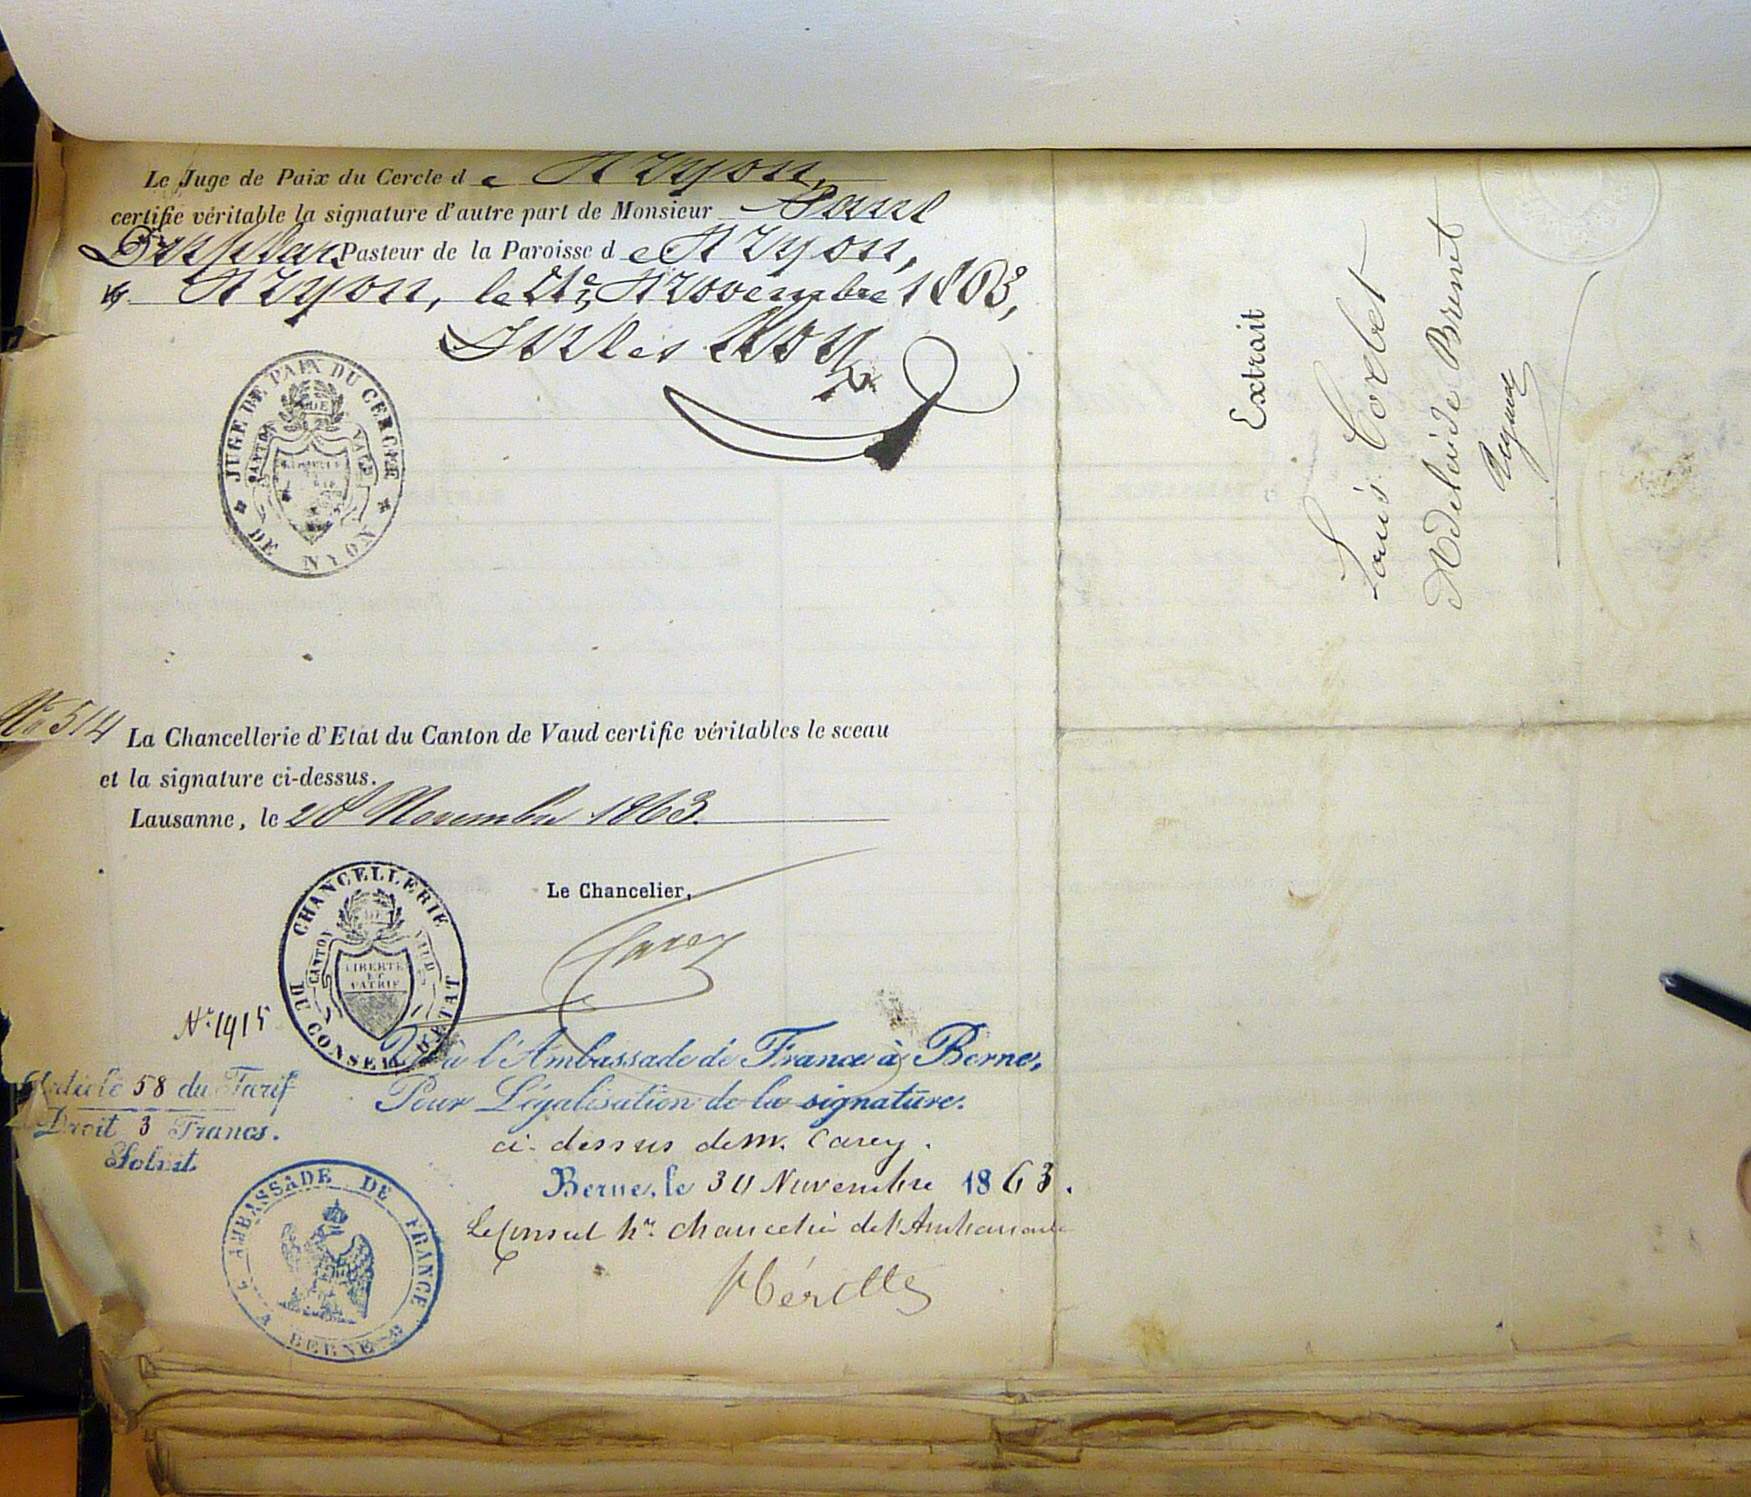 Le Juge de Paix du Cercle de Nyon,
certifie véritable la signature d'autre part de Monsieur Paul
Pasteur de la Paroisse de Nyon,
Nyon, le Novembre 1863,
Jules Roy
JUGE DE PAIX DU CERCLE
CANTON DE VAUD
DE NYON
No 514 La Chancellerie d'Etat du Canton de Vaud certifie véritables le sceau
et la signature ci-dessus.
Lausanne, le 28 Novembre 1863.
Le Chancelier,
Carey
CHANCELLERIE
DU CONSEIL D'ETAT
CANTON DE VAUD
LIBERTÉ
ET
PATRIE
No 1915
Vu à l'Ambassade de France à Berne,
Pour Légalisation de la signature.
ci-dessus de M. Carey.
Berne, le 30 Novembre 1863.
Le Consul hre Chancelier de l'Ambassade
Article 58 du Tarif
Droit 3 Francs.
Solvit
AMBASSADE DE FRANCE
A BERNE
Extrait
Louis Corbet
Adelaïde Brunet